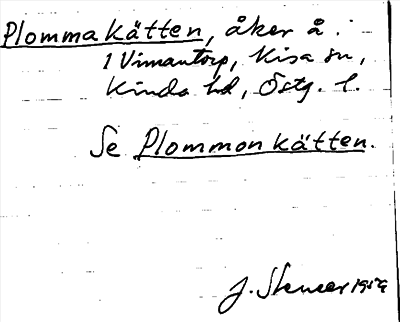 Plommakätten, åker å.
1 Vimantorp, Kisa sn,
Kinda hd, Östg. l.
Se Plommonkätten.
J.